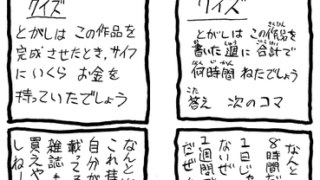 クイズ
とがしは この作品を
書いた週に合計で
何時間 ねたでしょう
答え 次のコマ
クイズ
とがしは この作品を
完成させたとき、サイフ
にいくら お金を
持っていたでしょう
なんと
8時間だ
1日じゃ
ないぜ
1週間で
だぜ
なんと
これ
自分が
載ってる
雑誌も
買えや
しねー